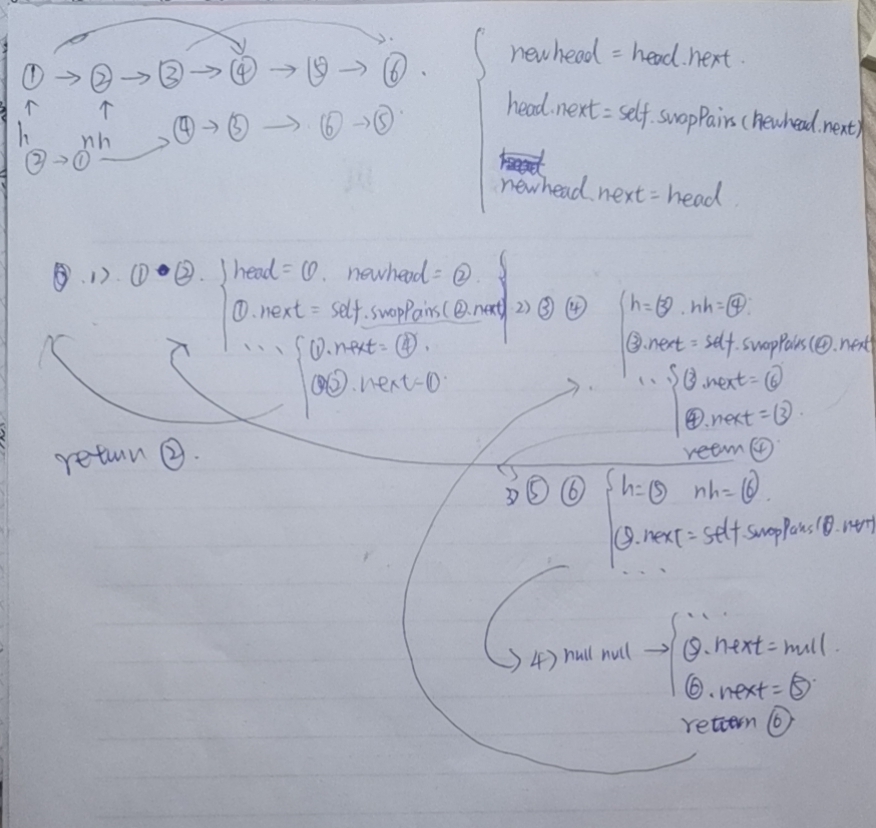 ① → ② → ③ → ④ → ⑤ → ⑥ .
h nh
② → ① → ④ → ③ → ⑥ → ⑤
newhead = head.next .
head.next = self.swapPairs(newhead.next)
newhead.next = head
1>. ① • ②. head = ①. newhead = ②.
①.next = self.swapPairs(②.next)
... ①.next = ④.
②.next = ①
return ②.
2) ③ ④ h = ③. nh = ④.
③.next = self.swapPairs(④.next
... ③.next = ⑥
④.next = ③.
return ④
3) ⑤ ⑥ h = ⑤ nh = ⑥.
⑤.next = self.swapPairs(⑥.next)
...
4) null null → ...
⑤.next = null.
⑥.next = ⑤
return ⑥